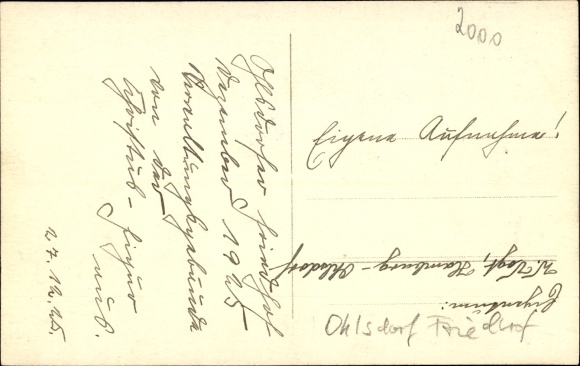 2000
Ohlsdorfer Friedhof
Dezember 1925
Verwaltungsgebäude
von der
Christus-Figur
aus.
27.12.25.
Eigene Aufnahme!
Eigentum:
W. Vogt, Hamburg-Ohlsdorf
Ohlsdorf Friedhof